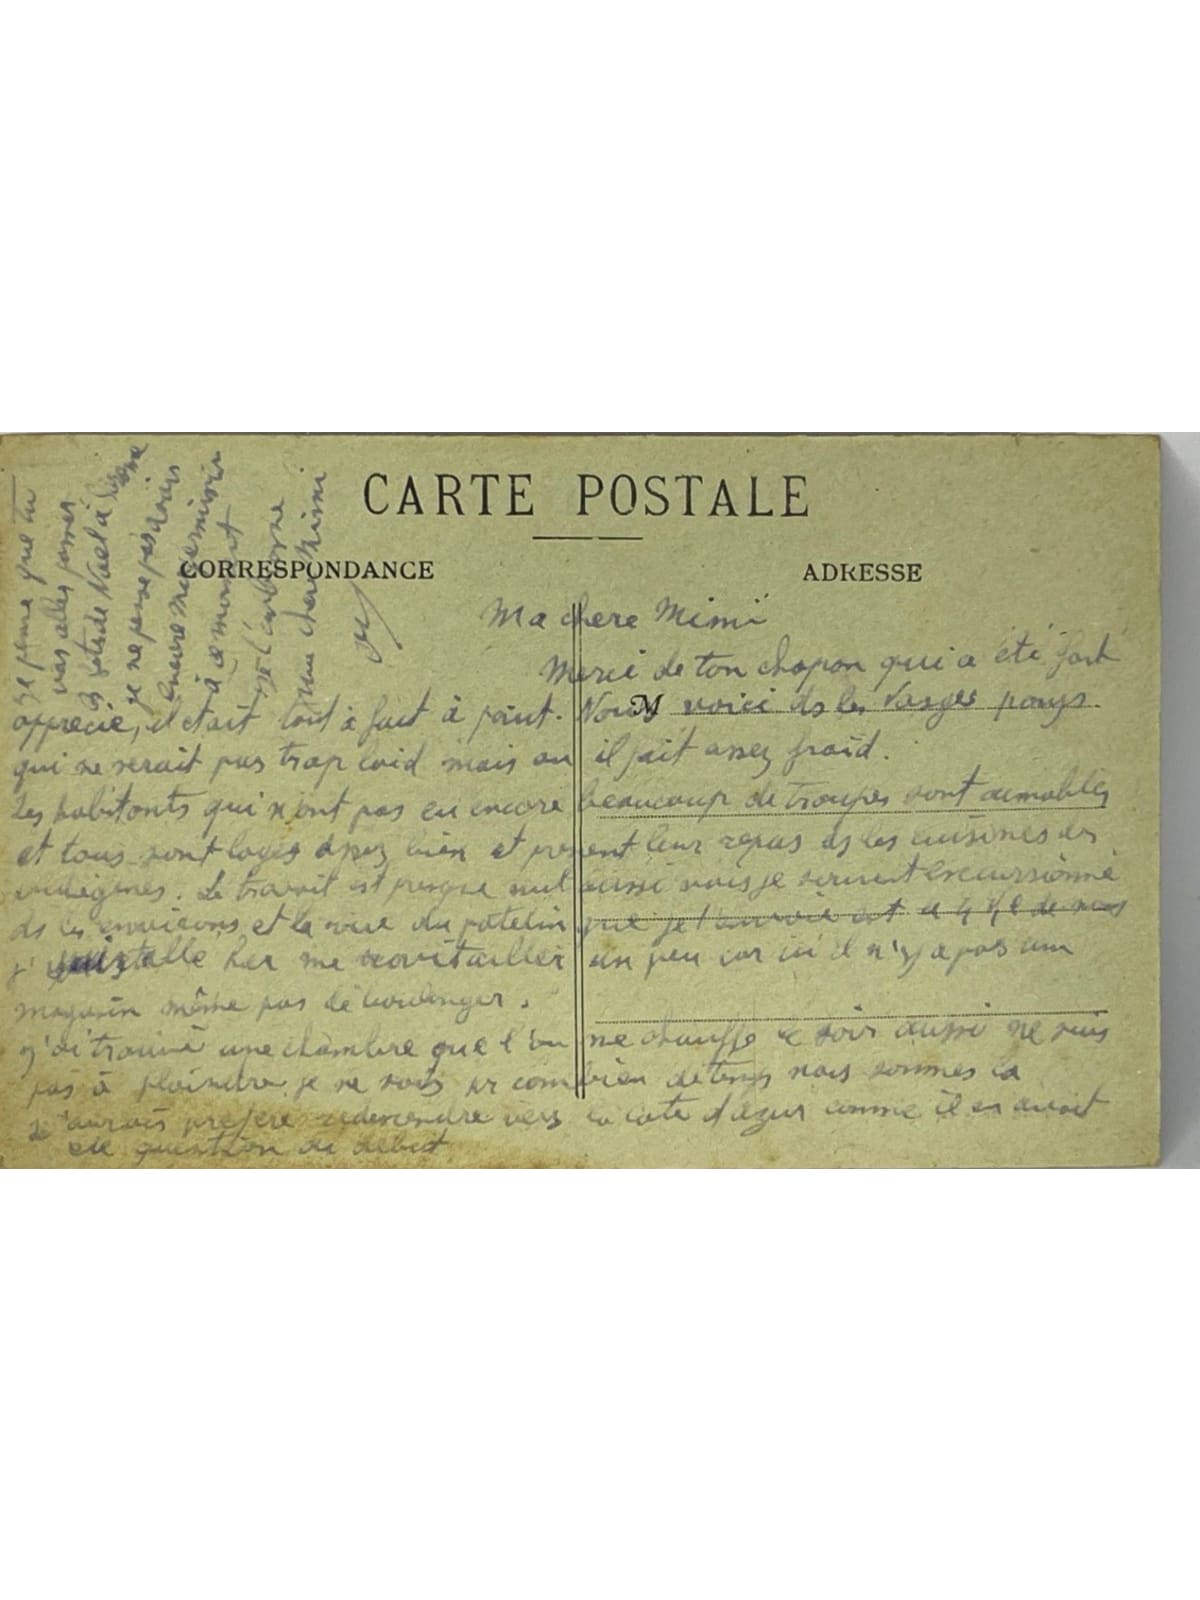 CARTE POSTALE
CORRESPONDANCE
ADRESSE
Ma chere Mimi
Merci de ton chapon qui a été fort
M
apprecié, il etait tout à fait à point. Nous voici ds les Vosges pays
qui ne serait pas trop laid mais ou il fait assez froid.
Les habitants qui n'ont pas eu encore beaucoup de troupes sont aimables
et tous sont logés assez bien et prenent leur repas ds les cuisines des
indigenes. Le travail est presque nul aussi vais je souvent excursionne
ds les environs et la vue du patelin que je t'envoie est a 4 K de nous
j' allé hier me ravitailler un peu car ici il n'y a pas un
magasin même pas de boulanger.
j'ai trouvé une chambre que l'on me chauffe le soir aussi ne suis
pas à plaindre je ne sais pr combien de temps nous sommes la
j'aurais prefere redescendre vers la cote d'azur comme il en avait
ete question au debut
Je pense que tu
vas aller passer
les fetes de Noel à
je ne pense pas avoir
encore ma permission
à ce moment
Je t'embrasse
ma chere Mimi